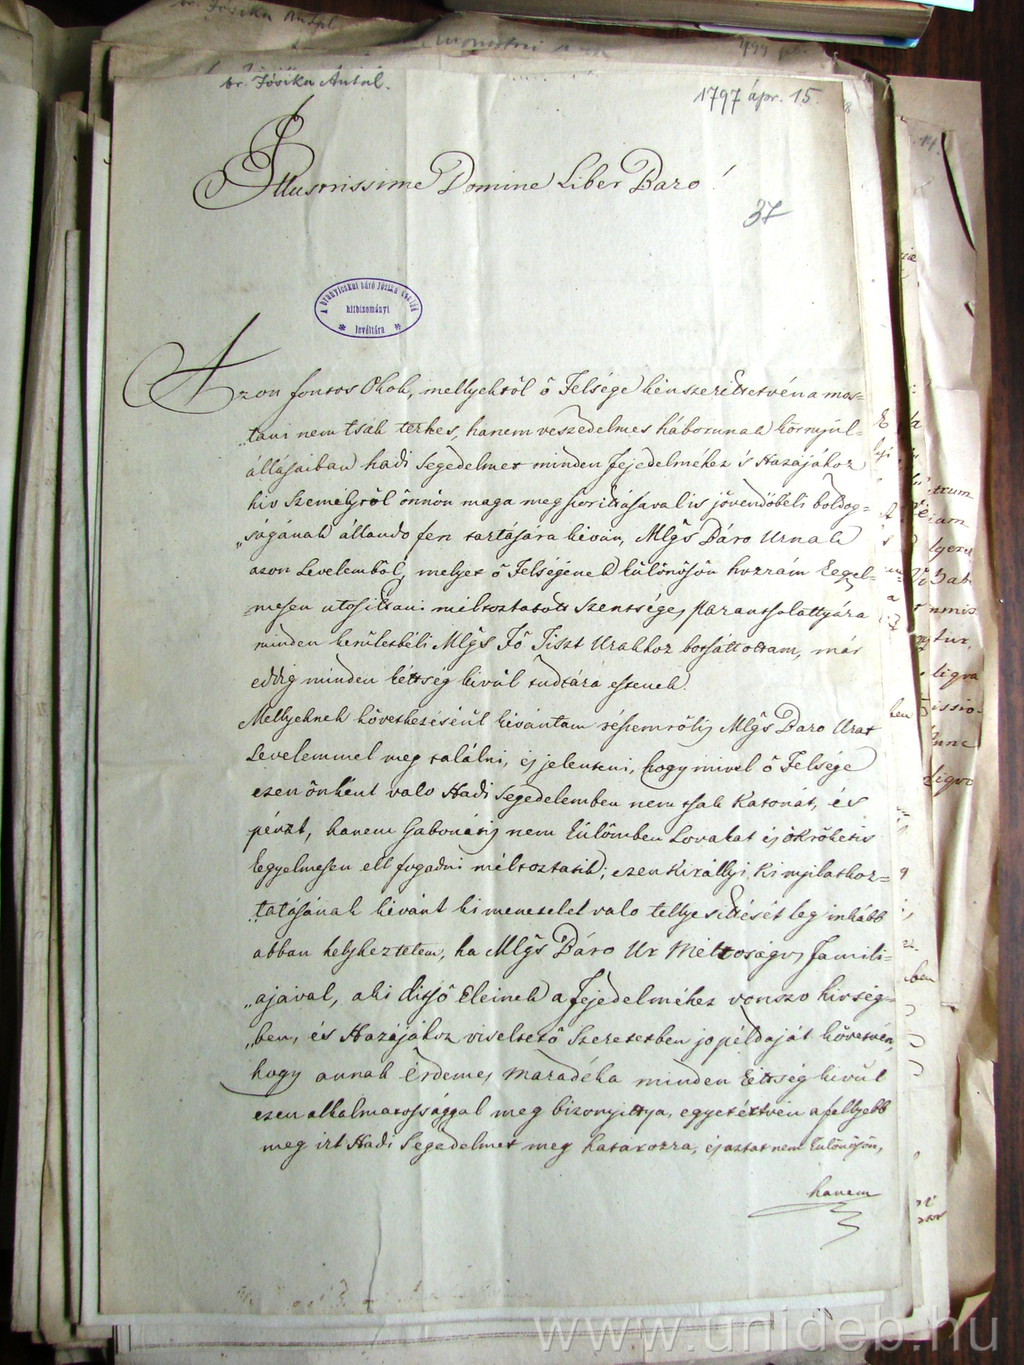 br. Jósika Antal.
1797 ápr. 15.
Illustrissime Domine Liber Baro!
37
A branyicskai báró Jósika család
hitbizományi
levéltára
Azon fontos Okok, mellyektöl ö Felsége kénszeríttetvén a mos=
„tani nem tsak terhes, hanem veszedelmes háborunak környül=
állásaiban hadi Segedelmet minden fejedelméhez és Hazájához
hív Személytöl önnön maga meg szoríttásával is jövendöbéli boldog=
„ságának állando fen tartására kiván, Mlgs Báro Urnak
azon Levelemböl, melyet ö Felségének különösön hozzám kegyel=
mesen utosittani méltoztatott Szentséges Parantsolattyára
minden kerületbéli Mlgs Fö Tiszt Urakhoz botsáttottam, már
eddig minden kéttség kivül tudtára estenek.
Mellyeknek következésëül kivántam részemröl is Mlgs Baro Urat
Levelemmel meg találni, és jelenteni, hogy mivel ö Felsége
ezen önként valo Hadi Segedelemben nem tsak Katonát, és
pénzt, hanem Gabonátis nem külömben Lovakat és ökröketis
kegyelmesen ell fogadni méltoztatik; ezen Királlyi Ki nyilatkoz=
„tatásának kivánt ki menetelet valo tellyesittését leg inkább
abban helyheztetem, ha Mlgs Báro Ur Méltoságos Famili=
„ajával, aki ditsö Eleinek a fejedelméhez vonszo hivség=
„ben, és Hazájához viseltetö Szeretetben jo példáját követvén,
hogy annak Érdemes Maradéka minden kéttség kivül
ezen alkalmatossággal meg bizonyittya, egyetértvén a fellyebb
meg irt Hadi Segedelmet meg határozza, és aztat nem különösön,
hanem
www.unideb.hu